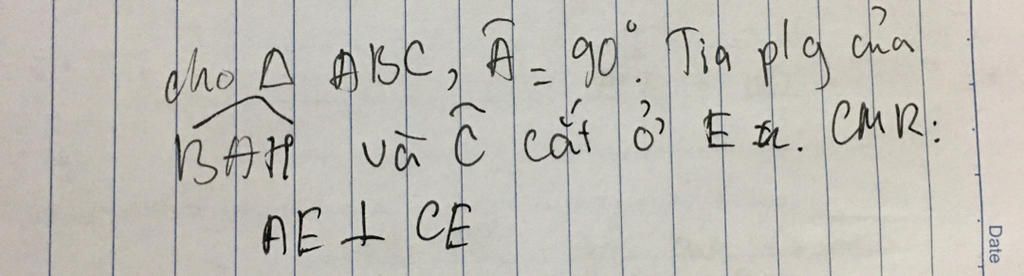 cho Δ ABC, Â = 90°. Tia p/g của
BAH và Ĉ cắt ở E. CMR:
AE ⊥ CE
Date